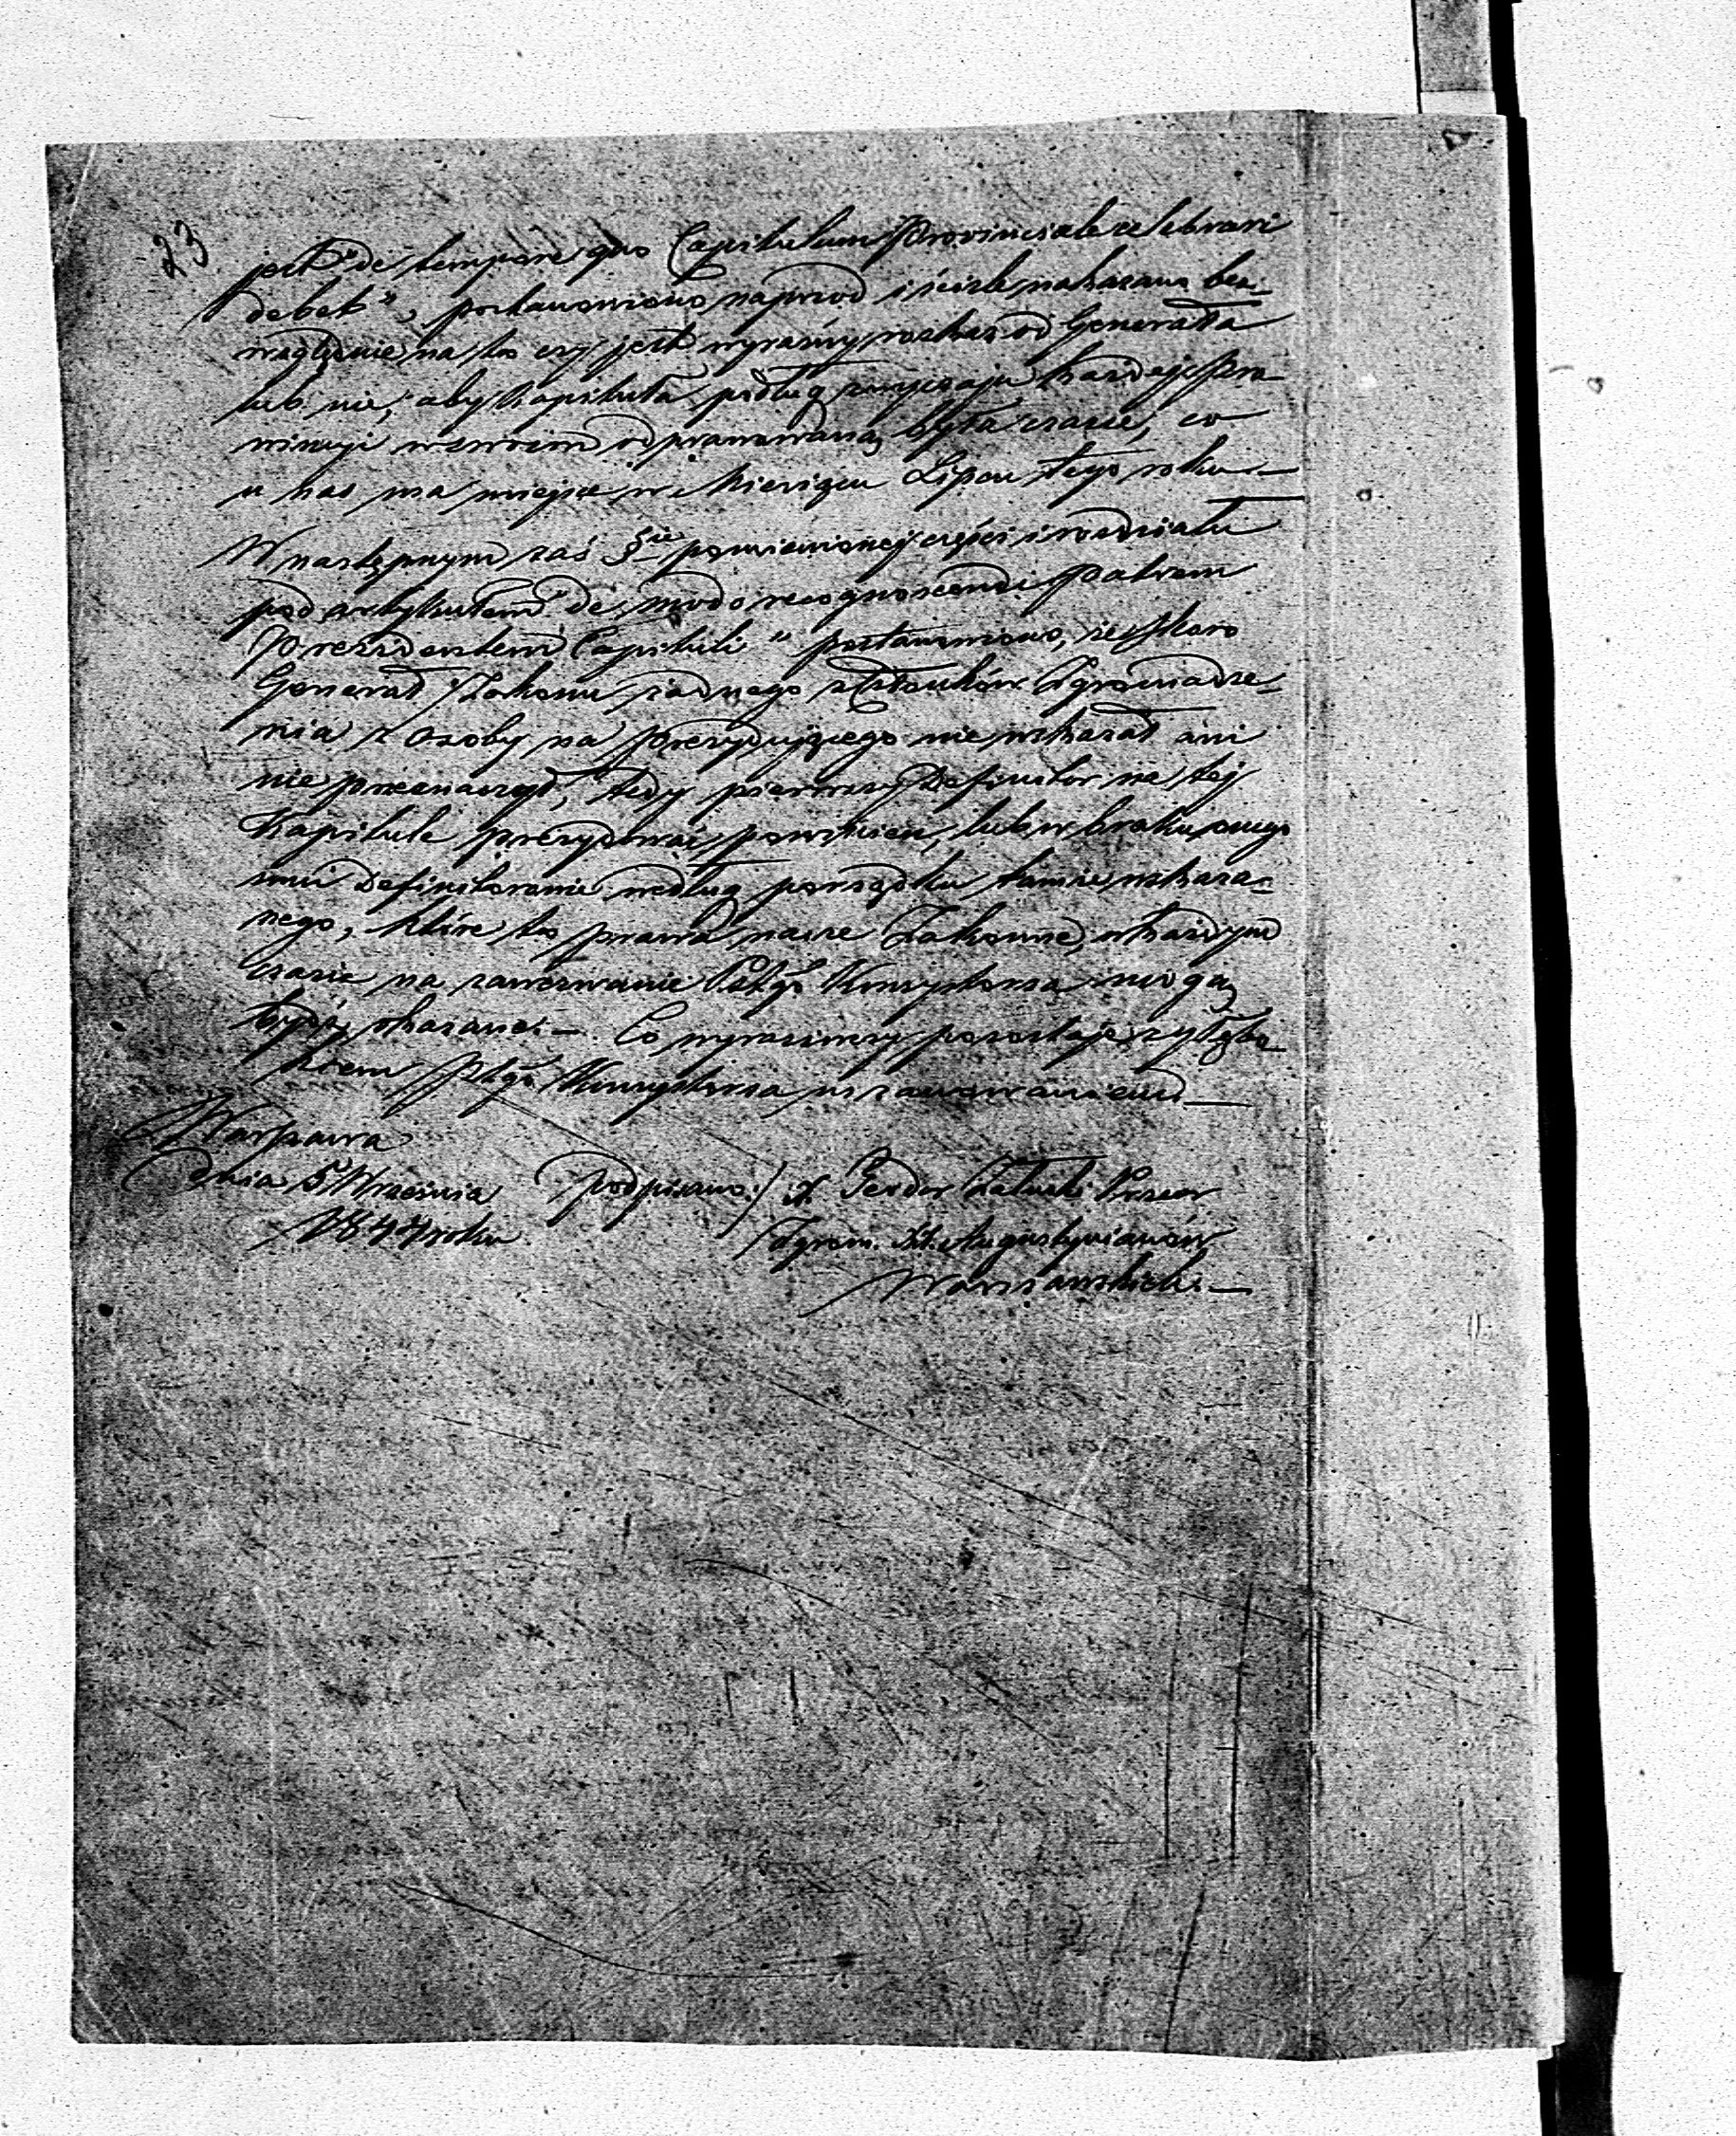 23
jest "de tempore quo Capitulum Provinciale celebrari
debet", postanowiono naprzód i ściśle nakazano bez-
względnie na to czy jest wyraźny rozkaz od Generała
lub nie, aby Kapituła podług zwyczaju każdej Pro-
wincyi w swoim odprawowaną była czasie, co
u nas ma miejsce w Miesiącu Lipcu tego roku —
W następnym zaś §ie pomienionej części i rozdziału
pod artykułem "de modo recognoscendi Patrem
Prezidentem Capituli" postanowiono, że skoro
Generał Zakonu żadnego z Członków Zgromadze-
nia z osoby na prezydującego nie wskazał ani
nie przeznaczył, tedy pierwszy Definitor na tej
Kapitule prezydować powinien, lub w braku onego
inni Definitorowie według porządku tamże wskaza-
nego, które to prawa nasze Zakonne, w każdym
czasie na zawezwanie Konsystorza mogą
bydź okazane. — Co wyraziwszy pozostaję z głębo-
kiem Konsystorza uszanowaniem —
Warszawa
dnia 5 Września podpisano:/ X. Załuski Przeor
1847 roku Zgrom. XX. Augustyanów
Warszawskich. —